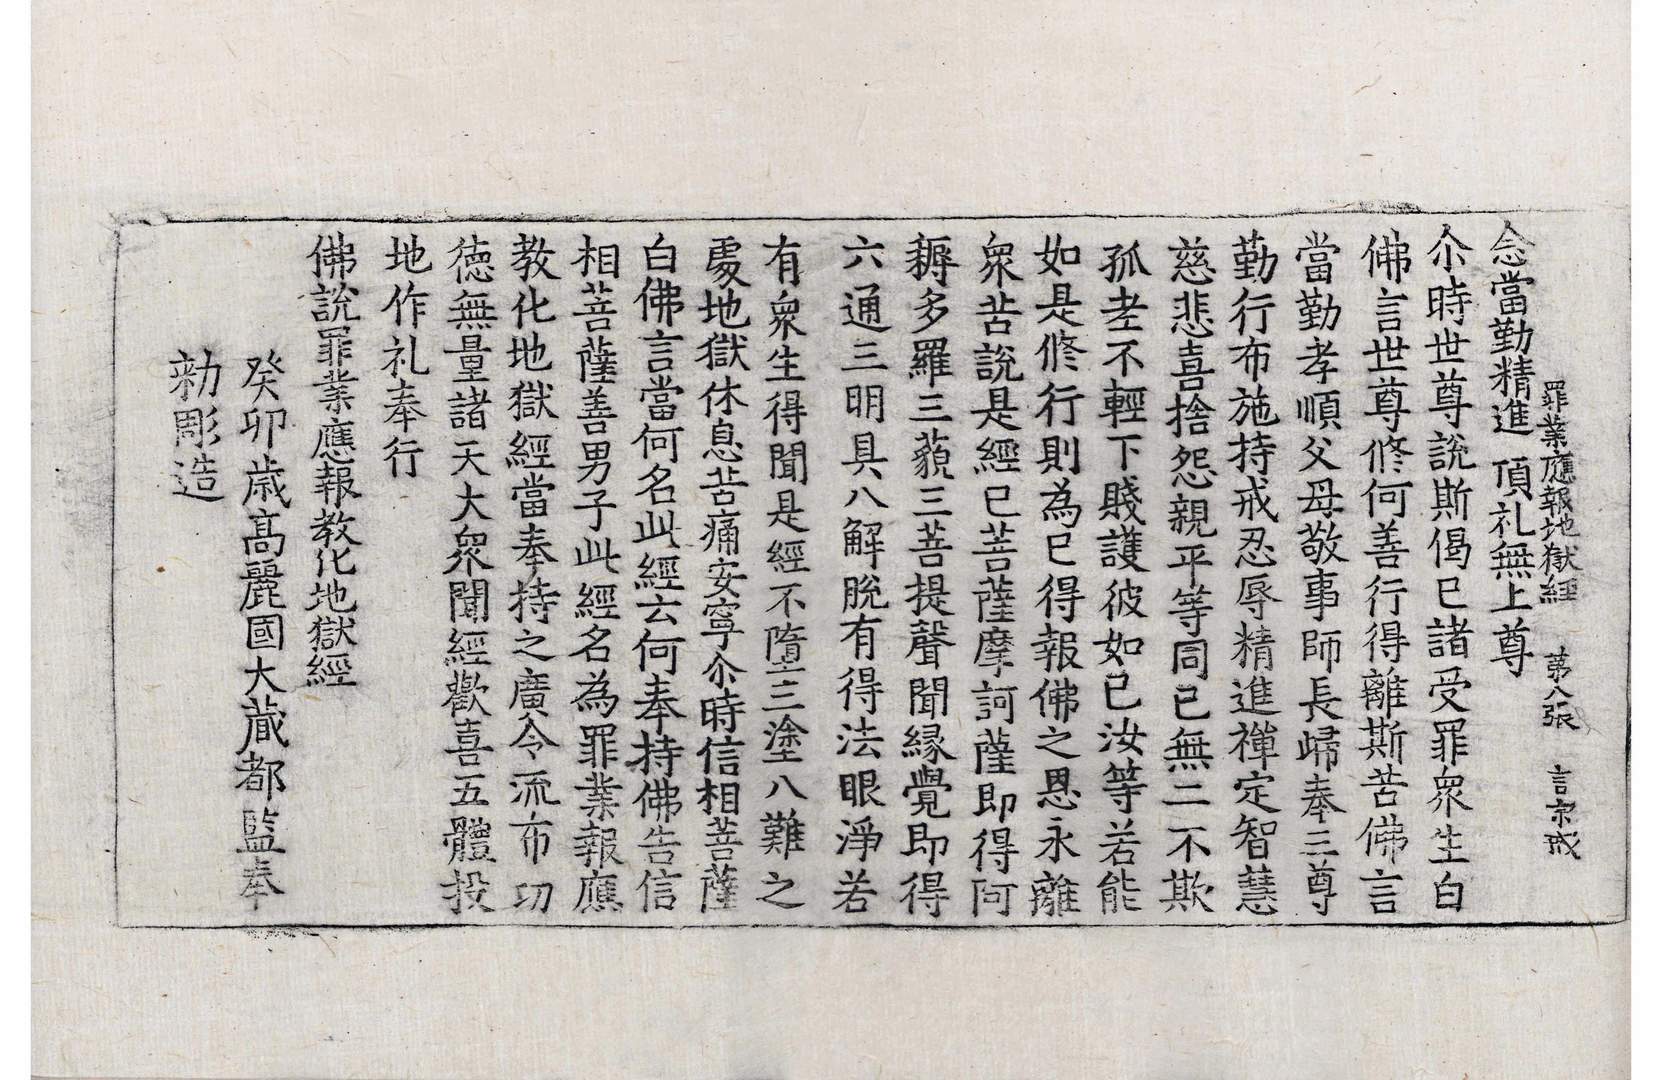 罪業應報地獄經　第八張　言宗戒
念當勤精進　頂礼無上尊
尒時世尊說斯偈已諸受罪衆生白
佛言世尊修何善行得離斯苦佛言
當勤孝順父母敬事師長歸奉三尊
勤行布施持戒忍辱精進禪定智慧
慈悲喜捨怨親平等同已無二不欺
孤老不輕下賤護彼如已汝等若能
如是修行則為已得報佛之恩永離
衆苦說是經已菩薩摩訶薩即得阿
耨多羅三藐三菩提聲聞緣覺即得
六通三明具八解脫有得法眼淨若
有衆生得聞是經不墮三塗八難之
處地獄休息苦痛安寧尒時信相菩薩
白佛言當何名此經云何奉持佛告信
相菩薩善男子此經名為罪業報應
教化地獄經當奉持之廣令流布功
徳無量諸天大衆聞經歡喜五體投
地作礼奉行
佛說罪業應報教化地獄經
癸卯歲高麗國大藏都監奉
勑彫造